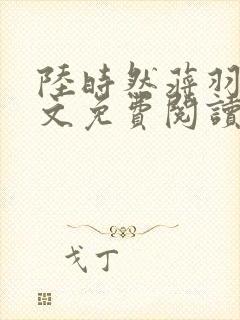 陸時然蔣羽
文免費閱讀
戈丁